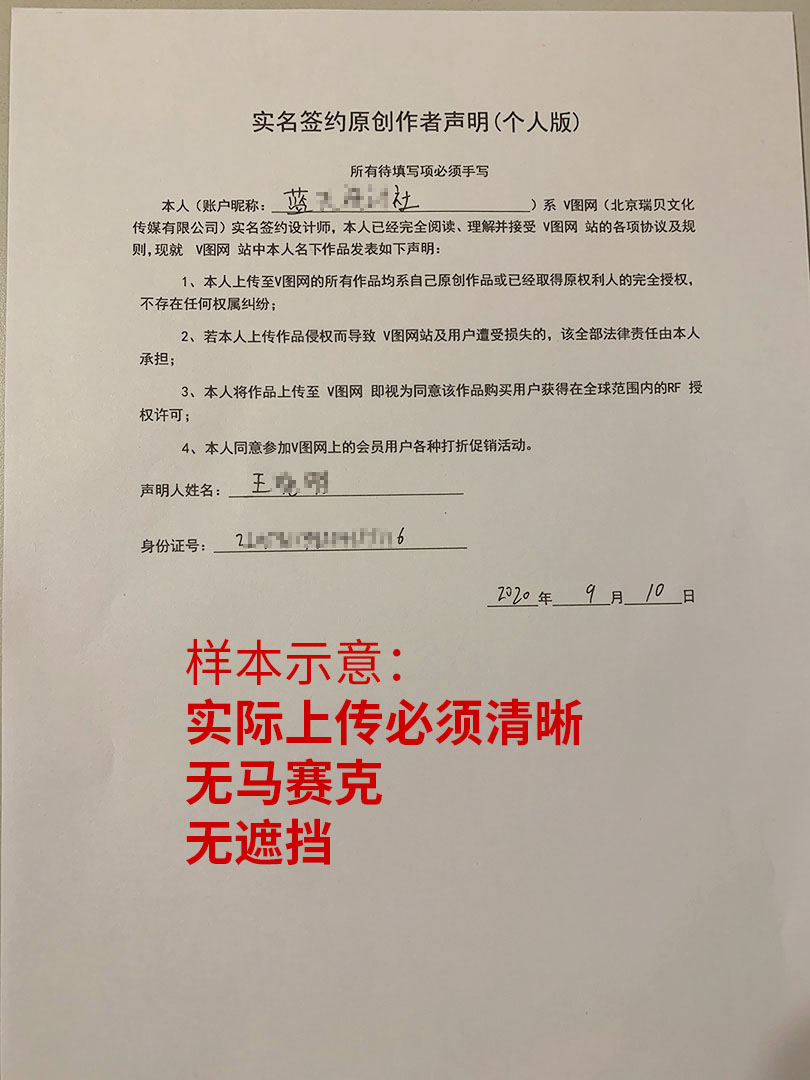 实名签约原创作者声明(个人版)
所有待填写项必须手写
本人（账户昵称：蓝 社）系 V图网（北京瑞贝文化
传媒有限公司）实名签约设计师，本人已经完全阅读、理解并接受 V图网 站的各项协议及规
则,现就 V图网 站中本人名下作品发表如下声明：
1、本人上传至V图网的所有作品均系自己原创作品或已经取得原权利人的完全授权，
不存在任何权属纠纷；
2、若本人上传作品侵权而导致 V图网站及用户遭受损失的，该全部法律责任由本人
承担；
3、本人将作品上传至 V图网 即视为同意该作品购买用户获得在全球范围内的RF 授
权许可；
4、本人同意参加V图网上的会员用户各种打折促销活动。
声明人姓名：王
身份证号：2 6
2020年 9 月 10 日
样本示意：
实际上传必须清晰
无马赛克
无遮挡